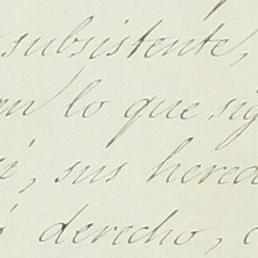 subsistente,
en lo que sig
é, sus hered
ó derecho, c